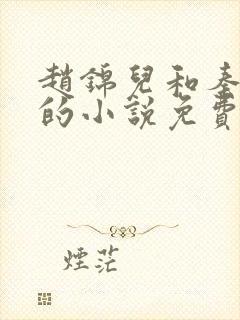 趙錦兒和秦
的小說免費
煙茫